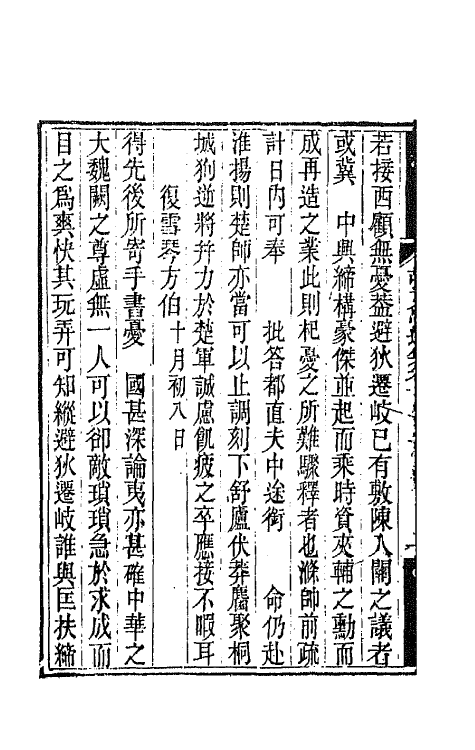 若接西顧無憂葢避狄遷岐已有敷陳入關之議者
或冀　中興締構豪傑並起而乘時資夾輔之勳而
成再造之業此則杞憂之所難驟釋者也滌師前疏
計日內可奉　　批答都直夫中途銜　　命仍赴
淮揚則楚師亦當可以止調刻下舒廬伏莽麕聚桐
城狗逆將幷力於楚軍誠慮飢疲之卒應接不暇耳
復雪琴方伯十月初八日
得先後所寄手書憂　國甚深論夷亦甚確中華之
大魏闕之尊虛無一人可以卻敵瑣瑣急於求成而
目之為爽快其玩弄可知縱避狄遷岐誰與匡扶締